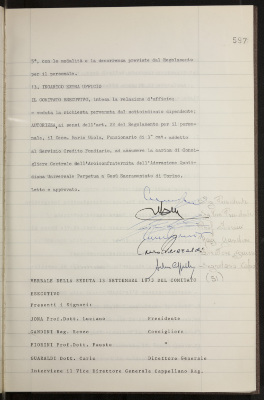 597
3°, con le modalità e la decorrenza previste dal Regolamento
per il personale.
IL COMITATO ESECUTIVO, intesa la relazione d'ufficio
e veduta la richiesta pervenuta dal sottoindicato dipendente,
AUTORIZZA, ai sensi dell'art. 20 del Regolamento per il perso-
nale, il Dott. Dario Scala, Funzionario di 3° cat. addetto
al Servizio Credito Fondiario, ad assumere la carica di Consi-
gliere Centrale dell'Amministrazione dell'Adorazione Quoti-
diana Universale Perpetua a Gesù Sacramentato di Torino.
Letto e approvato.
VERBALE DELLA SEDUTA 19 SETTEMBRE 1973 DEL COMITATO
ESECUTIVO
Presenti i Signori:
JONA Prof. Dott. Luciano Presidente
ZANDINI Rag. Bruno Consigliere
FIORINI Prof. Dott. Fausto "
GUARALDI Dott. Carlo Direttore Generale
Interviene il Vice Direttore Generale Cappellano Rag.